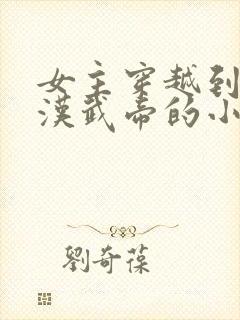 女主穿越到
漢武帝的小
劉奇葆